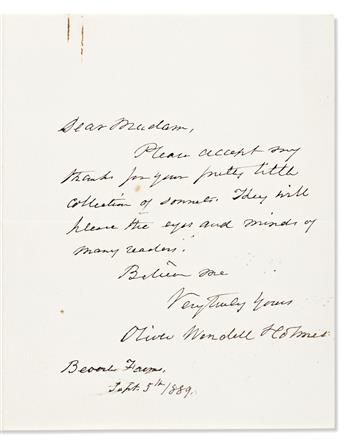 Dear Madam,
Please accept my
thanks for your pretty little
collection of sonnets. They will
please the eyes and minds of
many readers.
Believe me
Very truly Yours
Oliver Wendell Holmes.
Beverly Farms,
Sept. 5th 1889.